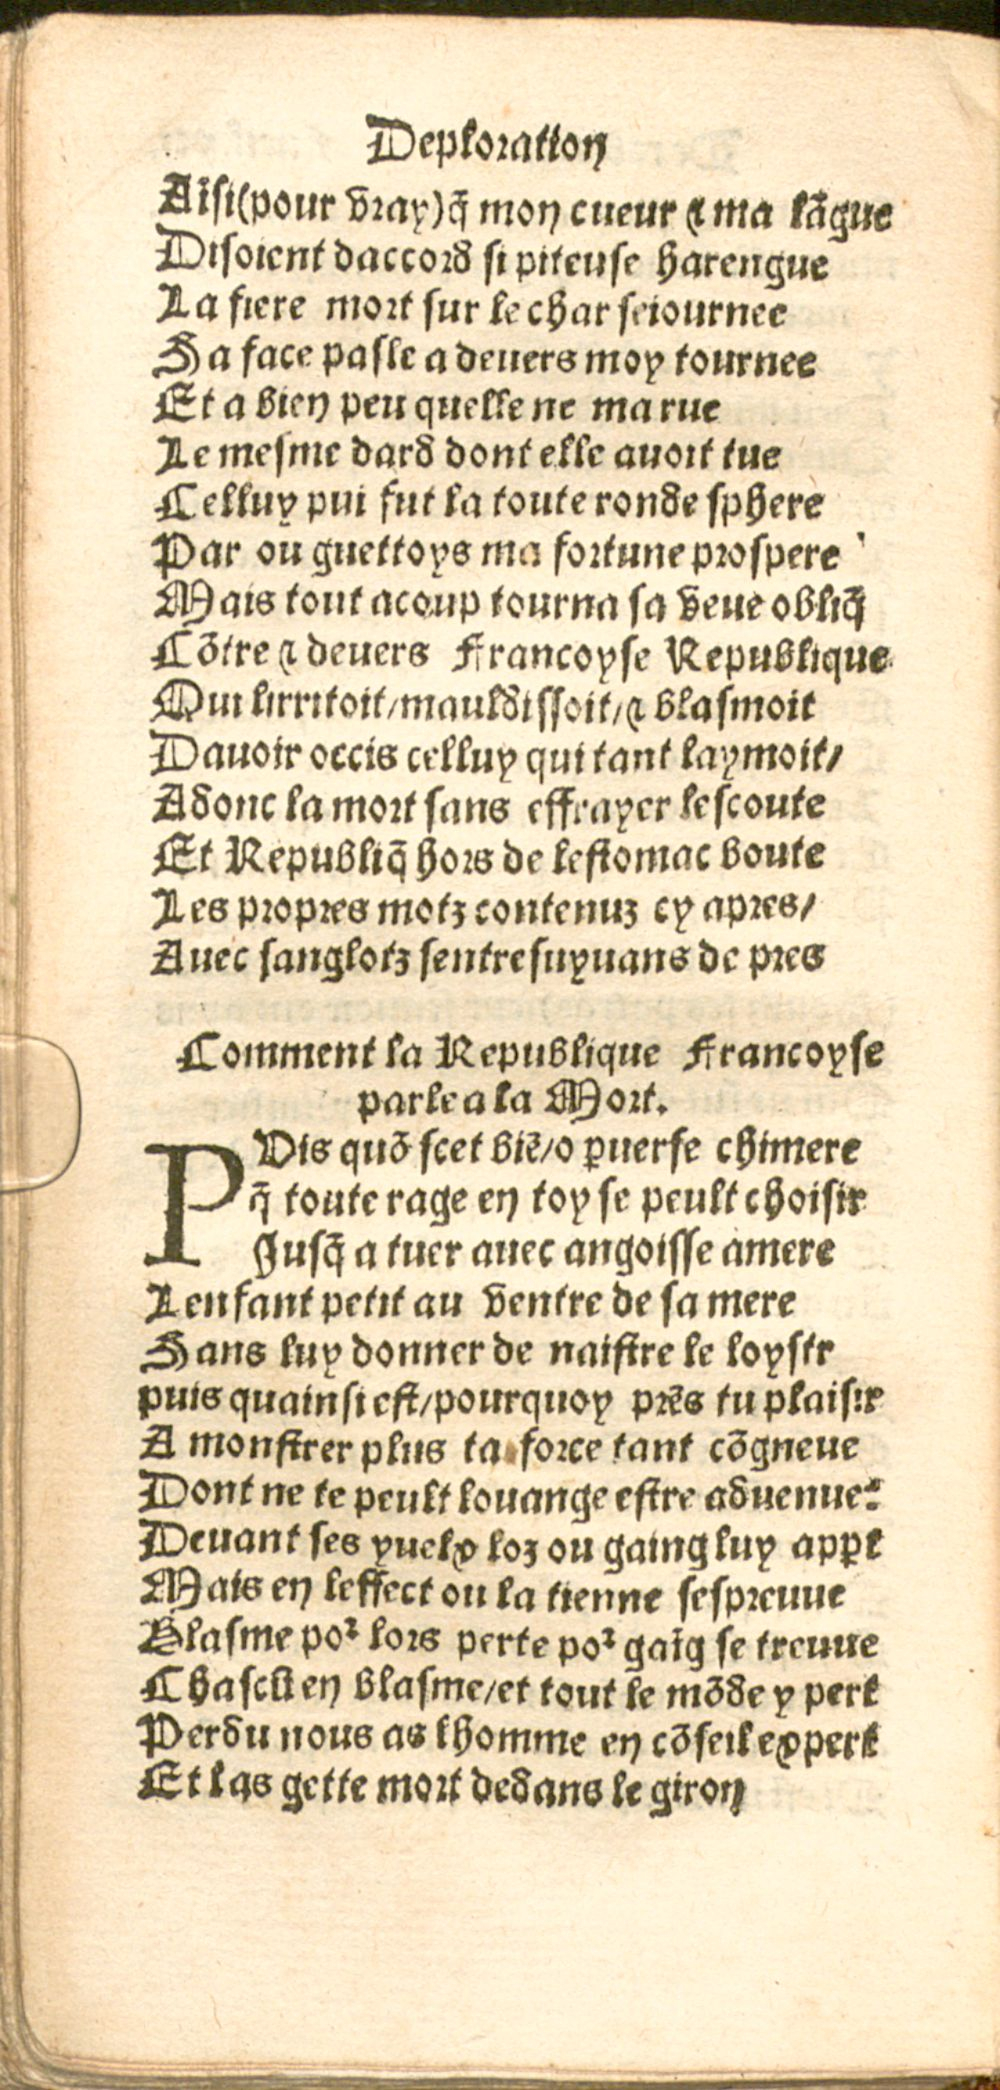 Deploration
Aīsi(pour vray)q̄ mon cueur ⁊ ma lāgue
Disoient daccord si piteuse harengue
La fiere mort sur le char seiournee
Sa face pasle a deuers moy tournee
Et a bien peu quelle ne ma rue
Le mesme dard dont elle auoit tue
Celluy pui fut la toute ronde sphere
Par ou guettoys ma fortune prospere
Mais tout acoup tourna sa veue obliq̄
Cōtre ⁊ deuers Francoyse Republique
Qui lirritoit/mauldissoit/⁊ blasmoit
Dauoir occis celluy qui tant laymoit/
Adonc la mort sans effrayer lescoute
Et Republiq̄ hors de lestomac boute
Les propres motz contenuz cy apres/
Auec sanglotz sentresuyuans de pres
Comment la Republique Francoyse
parle a la Mort.
PVis quō scet biē/o ꝑuerse chimere
q̄ toute rage en toy se peult choisir
Jusq̄ a tuer auec angoisse amere
Lenfant petit au ventre de sa mere
Sans luy donner de naistre le loysir
puis quainsi est/pourquoy prēs tu plaisir
A monstrer plus ta force tant cōgneue
Dont ne te peult louange estre aduenue?
Deuant ses yuelx loz ou gaing luy appt
Mais en leffect ou la tienne sespreuue
Blasme poꝛ lors perte poꝛ gaīg se treuue
Chascū en blasme/et tout le mōde y pert
Perdu nous as lhomme en cōseil expert
Et las gette mort dedans le giron